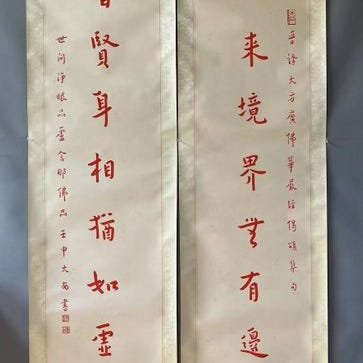 晉譯大方廣佛華嚴經偈頌集句
来境界無有邊
賢身相猶如虛
世間淨眼品盧舍那佛品壬申大書